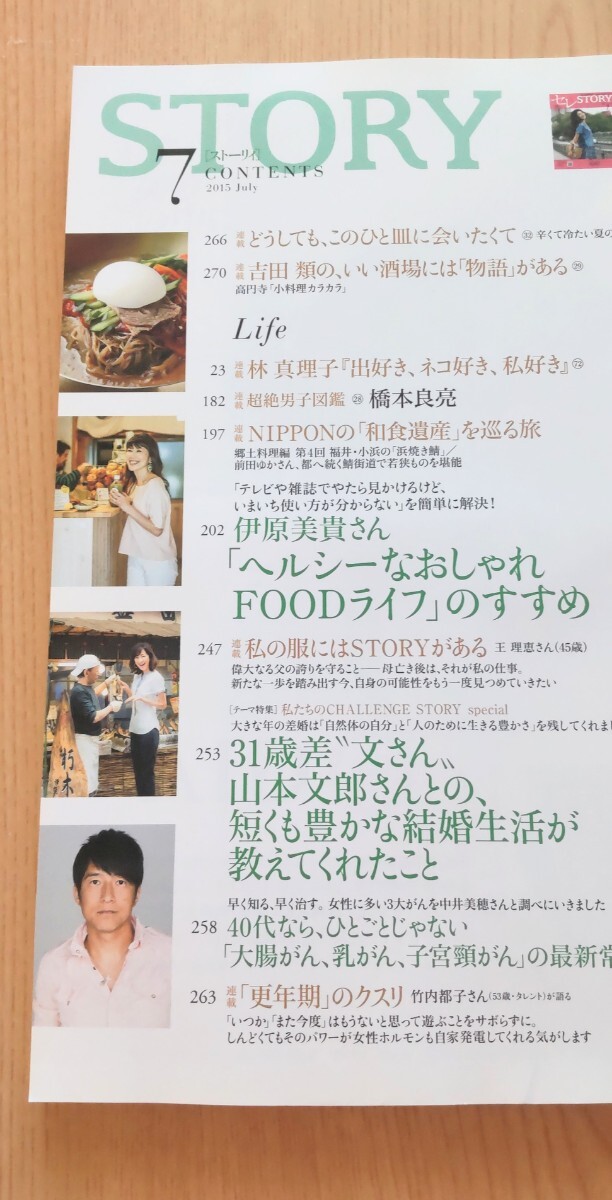 STORY
セレSTORY
7
[ストーリィ]
CONTENTS
2015 July
266 連載 どうしても、このひと皿に会いたくて ㉜ 辛くて冷たい夏の
270 連載 吉田 類の、いい酒場には「物語」がある ㉙
高円寺「小料理カラカラ」
Life
23 連載 林 真理子『出好き、ネコ好き、私好き』
182 連載 超絶男子図鑑 ㉘ 橋本良亮
197 連載 NIPPONの「和食遺産」を巡る旅
郷土料理編 第4回 福井・小浜の「浜焼き鯖」/
前田ゆかさん、都へ続く鯖街道で若狭ものを堪能
「テレビや雑誌でやたら見かけるけど、
いまいち使い方が分からない」を簡単に解決!
202 伊原美貴さん
「ヘルシーなおしゃれ
FOODライフ」のすすめ
247 連載 私の服にはSTORYがある 王 理恵さん(45歳)
偉大なる父の誇りを守ること――母亡き後は、それが私の仕事。
新たな一歩を踏み出す今、自身の可能性をもう一度見つめていきたい
[テーマ特集] 私たちのCHALLENGE STORY special
大きな年の差婚は「自然体の自分」と「人のために生きる豊かさ」を残してくれまし
253 31歳差〝文さん〟
山本文郎さんとの、
短くも豊かな結婚生活が
教えてくれたこと
朽木
早く知る、早く治す。女性に多い3大がんを中井美穂さんと調べにいきました
258 40代なら、ひとごとじゃない
「大腸がん、乳がん、子宮頸がん」の最新常
263 連載 「更年期」のクスリ 竹内都子さん(53歳・タレント)が語る
「いつか」「また今度」はもうないと思って遊ぶことをサボらずに。
しんどくてもそのパワーが女性ホルモンも自家発電してくれる気がします